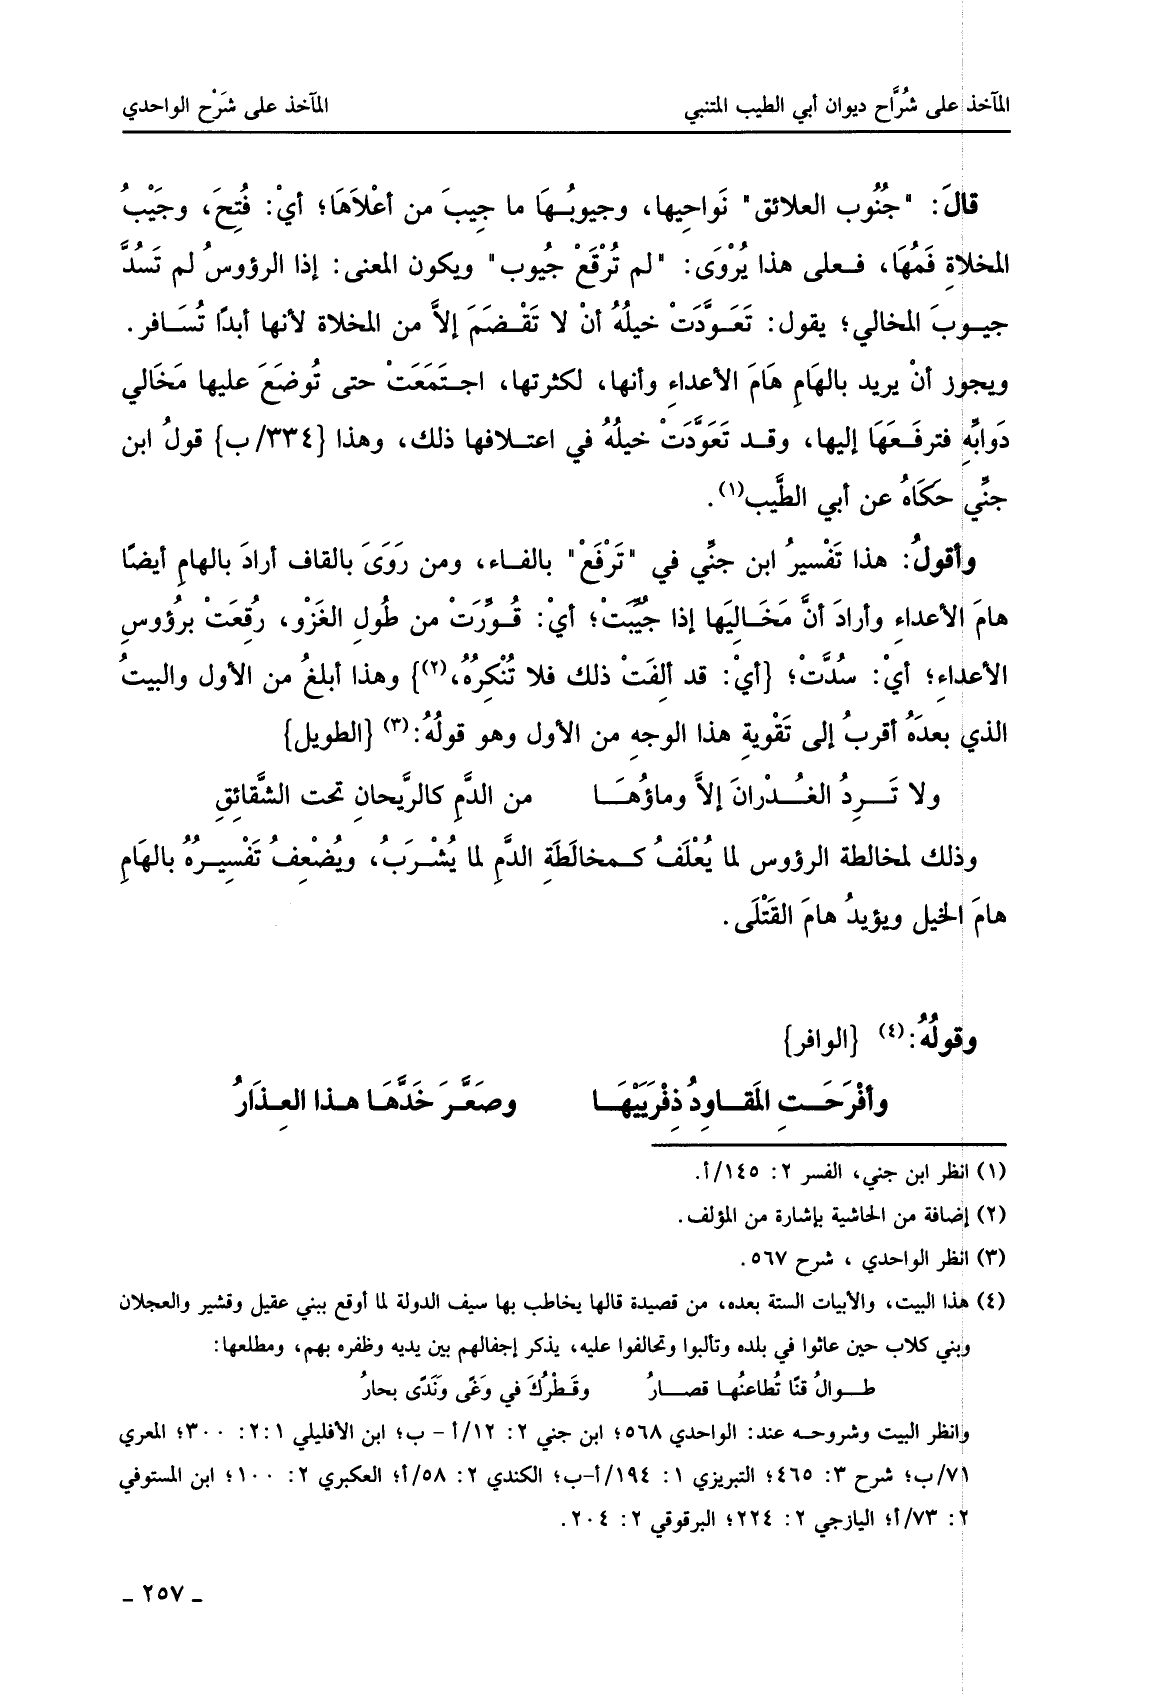 المآخذ على شُرَّاح ديوان أبي الطيب المتنبي المآخذ على شَرْح الواحدي
قالَ: "جُنُوب العلائق" نَواحِيها، وجيوبُها ما جِيبَ من أعْلاَهَا؛ أيْ: فُتِحَ، وجَيْبُ
المخلاةِ فَمُهَا، فعلى هذا يُرْوَى: "لم تُرْقَعْ جُيُوب" ويكون المعنى: إذا الرؤوسُ لم تَسُدَّ
جيوبَ المخالي؛ يقول: تَعَوَّدَتْ خيلُهُ أنْ لا تَقْضَمَ إلاَّ من المخلاة لأنها أبدًا تُسَافر.
ويجوز أنْ يريد بالهَامِ هَامَ الأعداءِ وأنها، لكثرتها، اجتَمَعَتْ حتى تُوضَعَ عليها مَخَالي
دَوابِّهِ فترفَعَهَا إليها، وقد تَعَوَّدَتْ خيلُهُ في اعتلافها ذلك، وهذا {٣٣٤/ب} قولُ ابن
جنِّي حكَاهُ عن أبي الطَّيب(١).
وأقولُ: هذا تَفْسيرُ ابن جنِّي في "تَرْفَعْ" بالفاء، ومن رَوَىَ بالقاف أرادَ بالهامِ أيضًا
هامَ الأعداءِ وأرادَ أنَّ مَخَالِيَها إذا جُيِّبَتْ؛ أيْ: قُوِّرَتْ من طُولِ الغَزْو، رُقِعَتْ برُؤوسِ
الأعداءِ؛ أيْ: سُدَّتْ؛ {أيْ: قد ألِفَتْ ذلك فلا تُنْكِرُهُ،(٢)} وهذا أبلغُ من الأول والبيتُ
الذي بعدَهُ أقربُ إلى تَقْويةِ هذا الوجهِ من الأول وهو قولُهُ:(٣) {الطويل}
ولا تَرِدُ الغُدْرانَ إلاَّ وماؤُهَا من الدَّمِ كالرَّيحانِ تحت الشَّقائقِ
وذلك لمخالطة الرؤوس لما يُعْلَفُ كمخالَطَةِ الدَّمِ لما يُشْرَبُ، ويُضْعِفُ تَفْسِيرُهُ بالهَامِ
هامَ الخيل ويؤيدُ هامَ القَتْلَى.
وقولُهُ:(٤) {الوافر}
وأقْرَحَتِ المَقاوِدُ ذِفْرَيَيْهَا وصَعَّرَ خَدَّهَا هذا العِذَارُ
(١) انظر ابن جني، الفسر ٢: ١٤٥/أ.
(٢) إضافة من الحاشية بإشارة من المؤلف.
(٣) انظر الواحدي ، شرح ٥٦٧.
(٤) هذا البيت، والأبيات الستة بعده، من قصيدة قالها يخاطب بها سيف الدولة لما أوقع ببني عقيل وقشير والعجلان
وبني كلاب حين عاثوا في بلده وتألبوا وتحالفوا عليه، يذكر إجفالهم بين يديه وظفره بهم، ومطلعها:
طوالُ قنًا تُطاعنُها قصارُ وقَطْرُكَ في وَغًى ونَدًى بحارُ
وانظر البيت وشروحه عند: الواحدي ٥٦٨؛ ابن جني ٢: ١٢/أ - ب؛ ابن الأفليلي ٢:١: ٣٠٠؛ المعري
٧١/ب؛ شرح ٣: ٤٦٥؛ التبريزي ١: ١٩٤/أ-ب؛ الكندي ٢: ٥٨/أ؛ العكبري ٢: ١٠٠؛ ابن المستوفي
٢: ٧٣/أ؛ اليازجي ٢: ٢٢٤؛ البرقوقي ٢: ٢٠٤.
ـ ٢٥٧ ـ